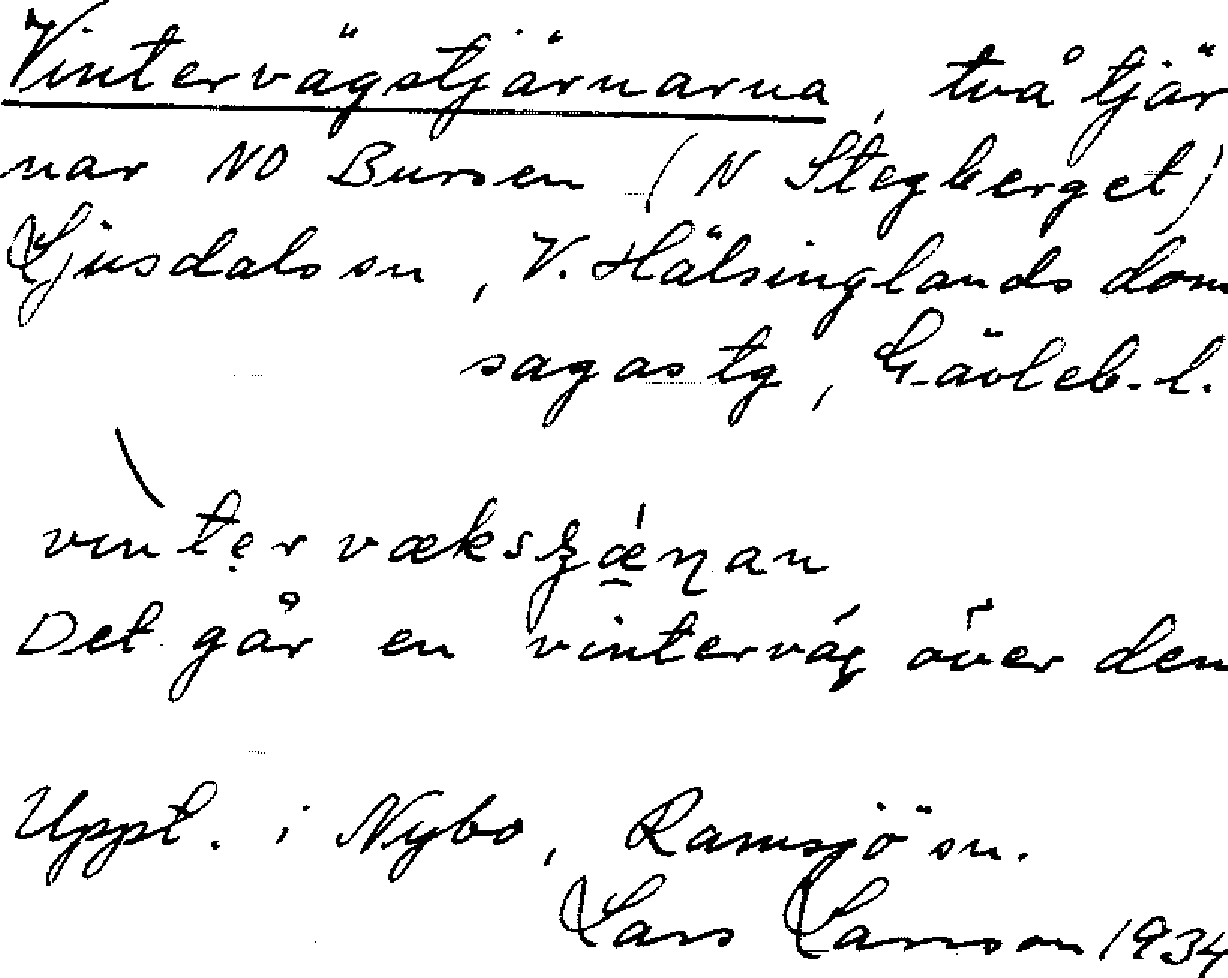 Vintervägstjärnarna, två tjär
nar NO Bursen (N Stegberget)
Ljusdals sn, V. Hälsinglands dom
sagas tg, Gävleb. l.
Det går en vinterväg över den
Uppt. i Nybo, Ramsjö sn.
Lars Larsson 1934